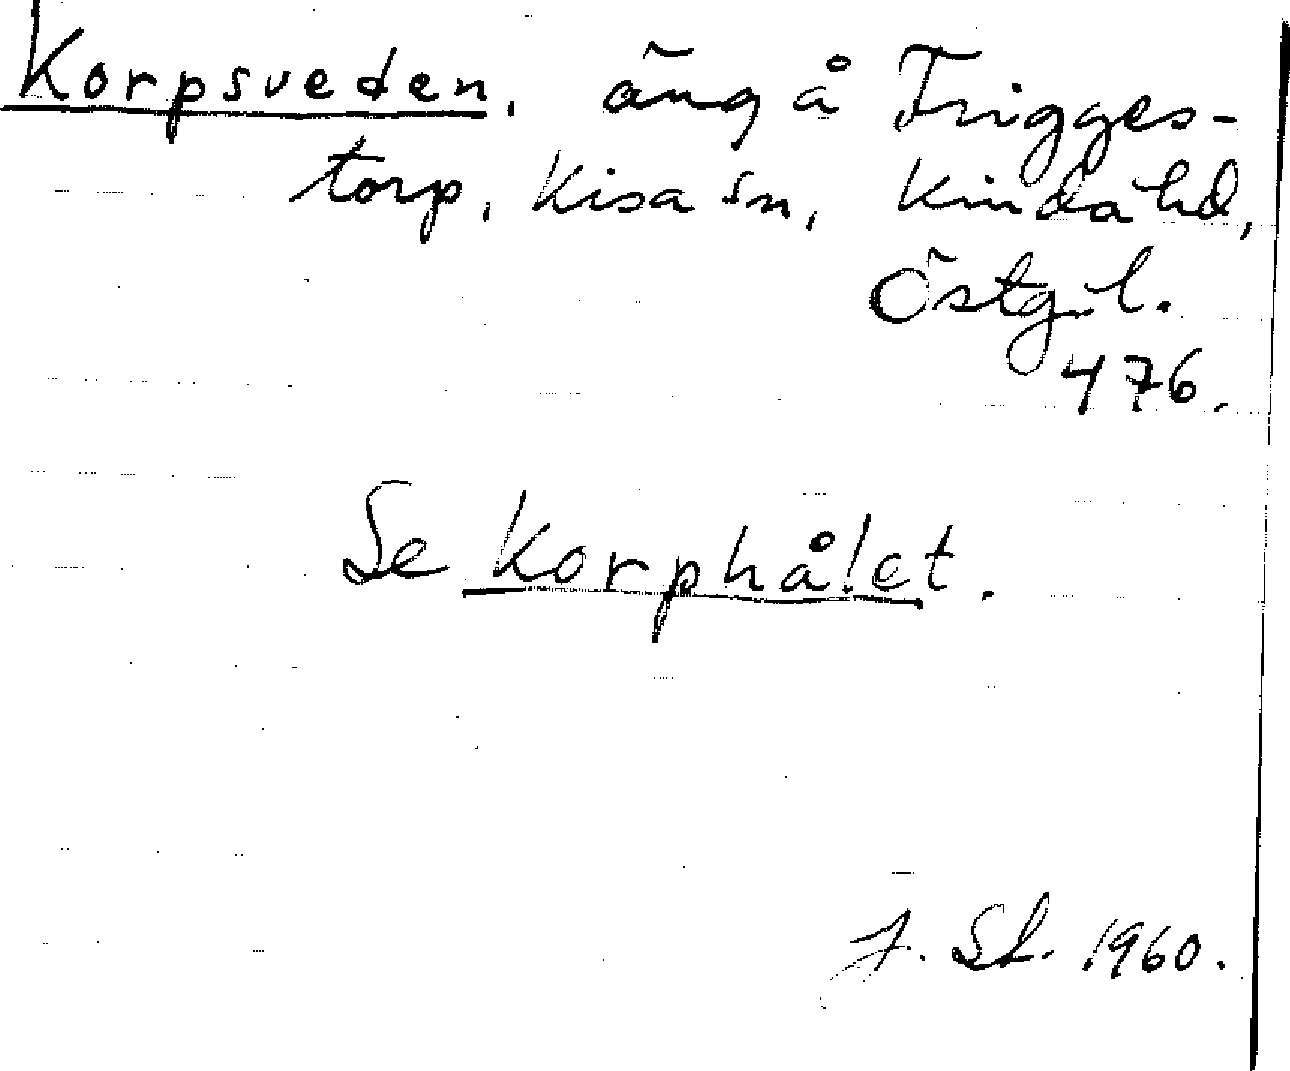 Korpsveden, äng å Trigges-
torp, Kisa sn, Kinda hd,
Östg. l.
476.
Se Korphålet.
1960.